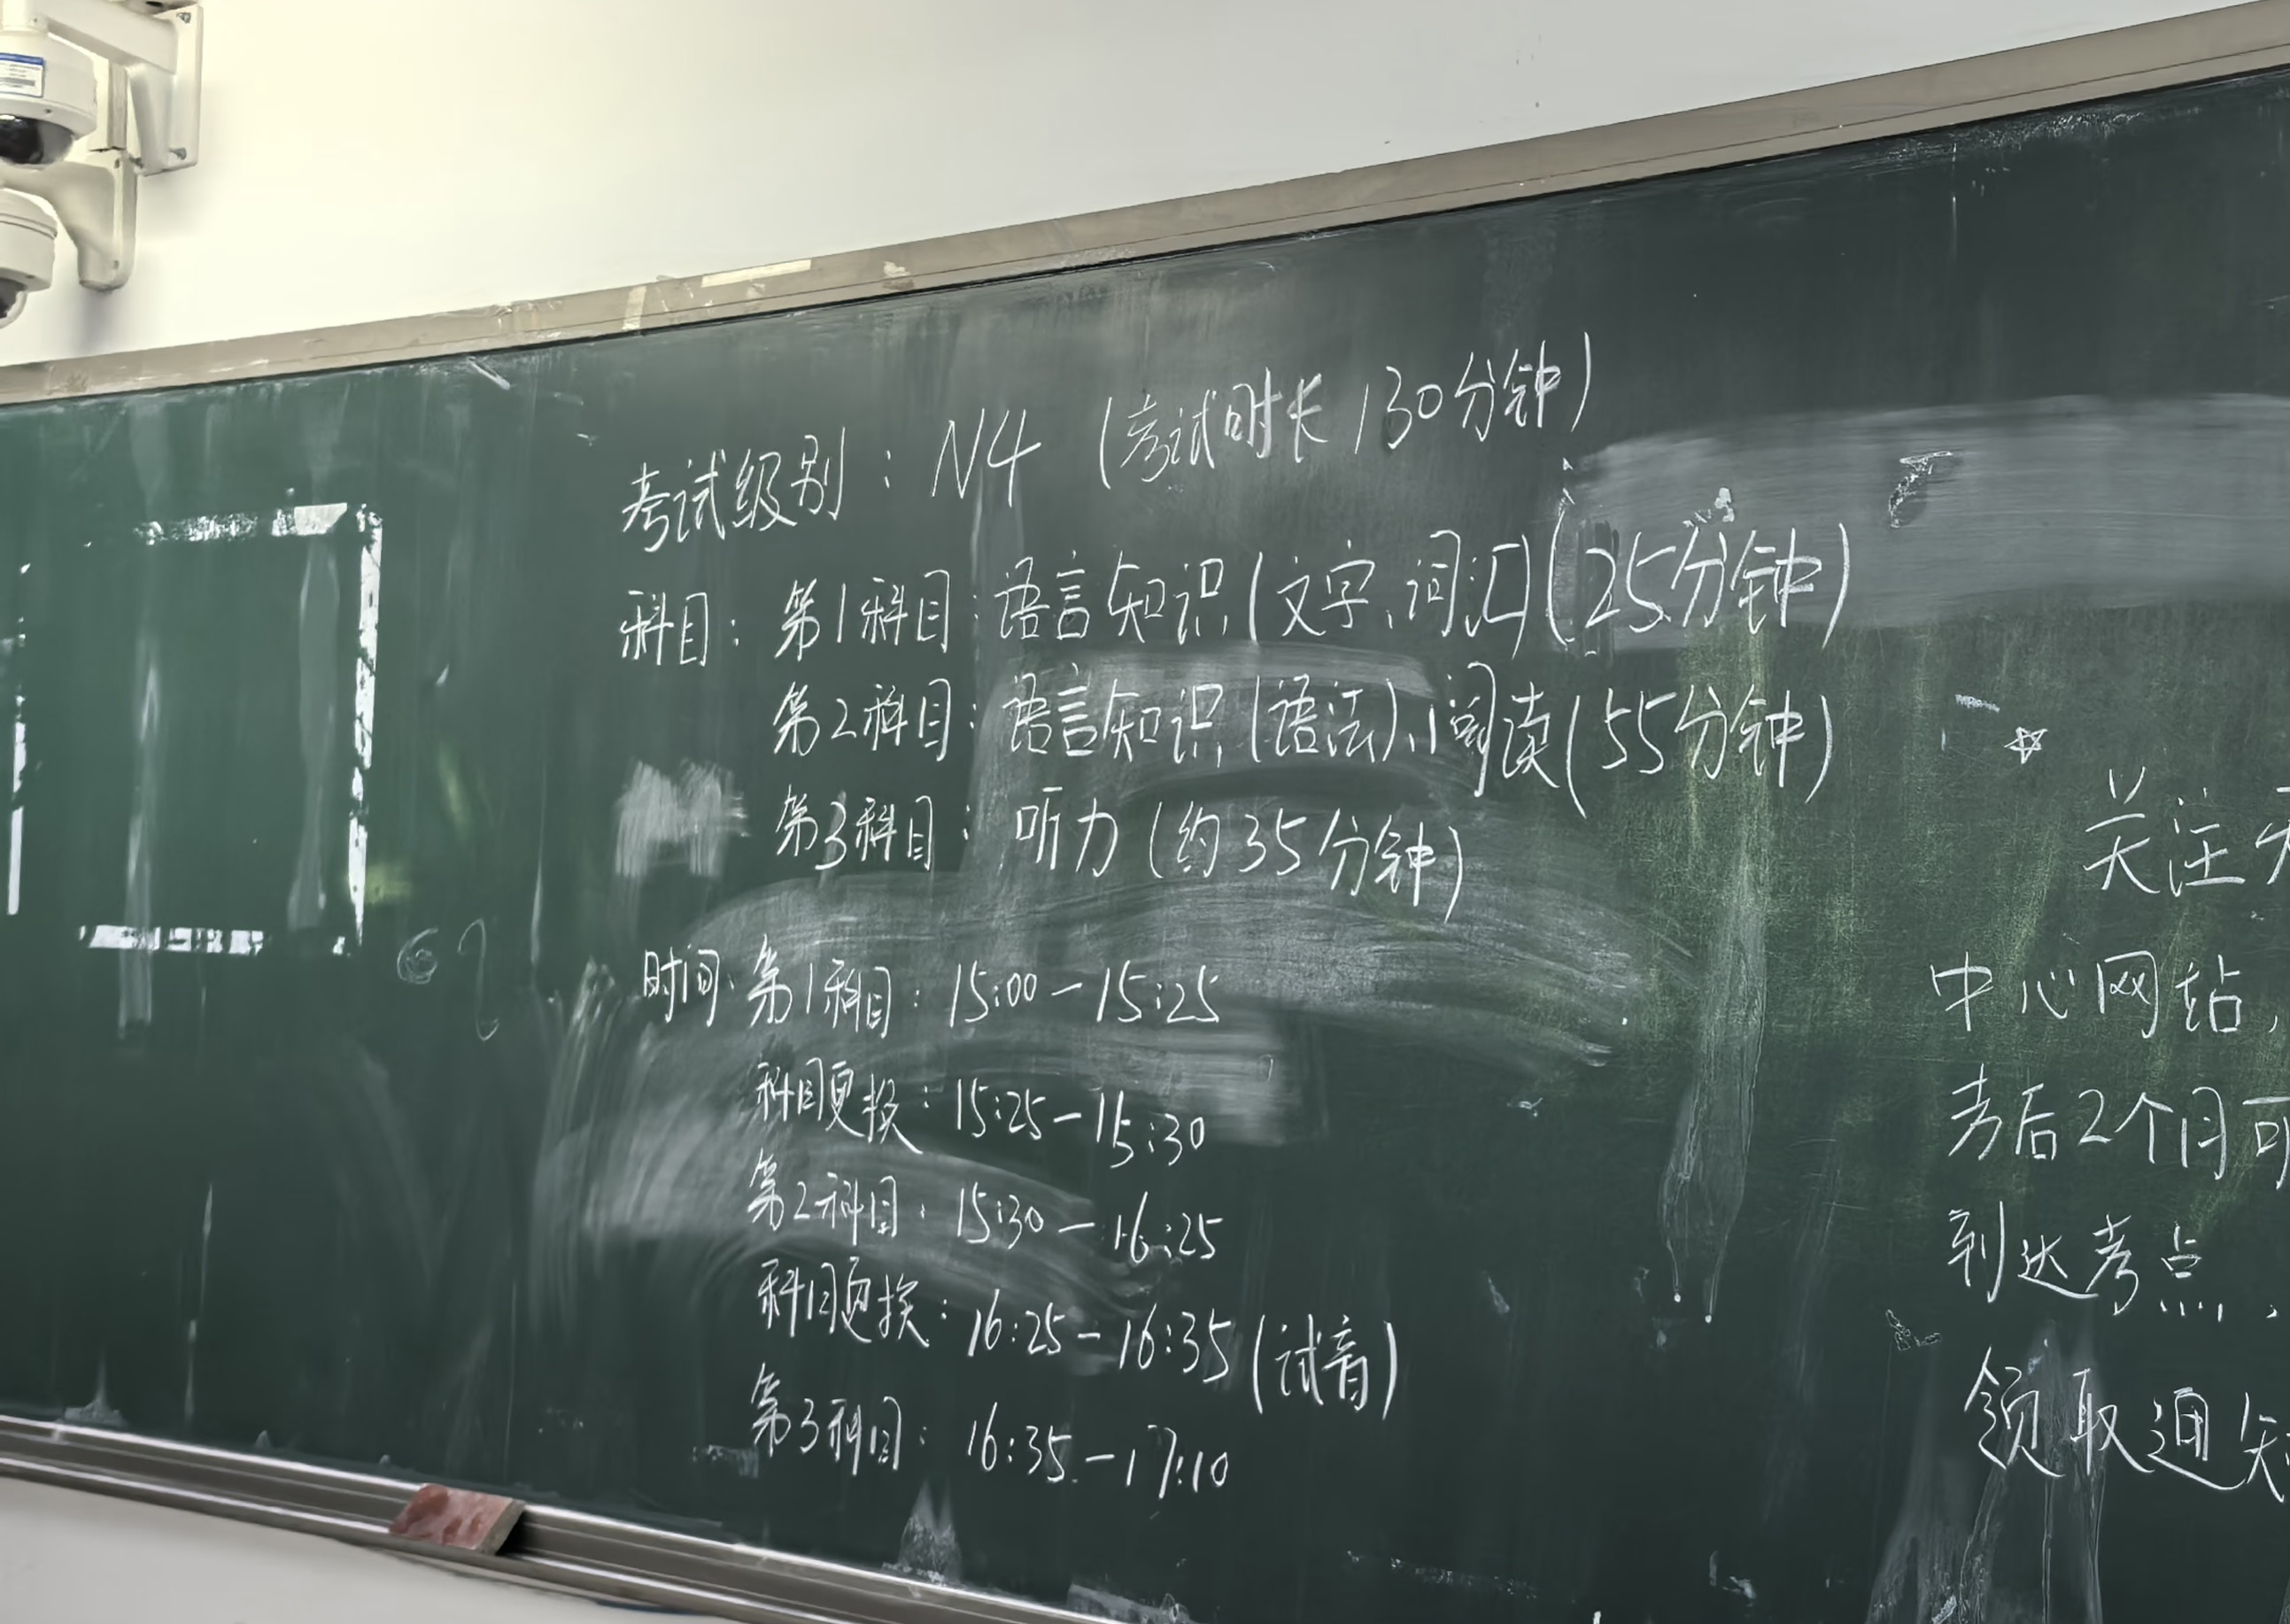 考试级别：N4（考试时长130分钟）
科目：第1科目：语言知识(文字、词汇)(25分钟)
第2科目：语言知识(语法)、阅读(55分钟)
第3科目：听力(约35分钟)
时间：第1科目：15:00-15:25
科目更换：15:25-15:30
第2科目：15:30-16:25
科目更换：16:25-16:35(试音)
第3科目：16:35-17:10
关注
中心网站，
考后2个月可
到达考点，
领取通知